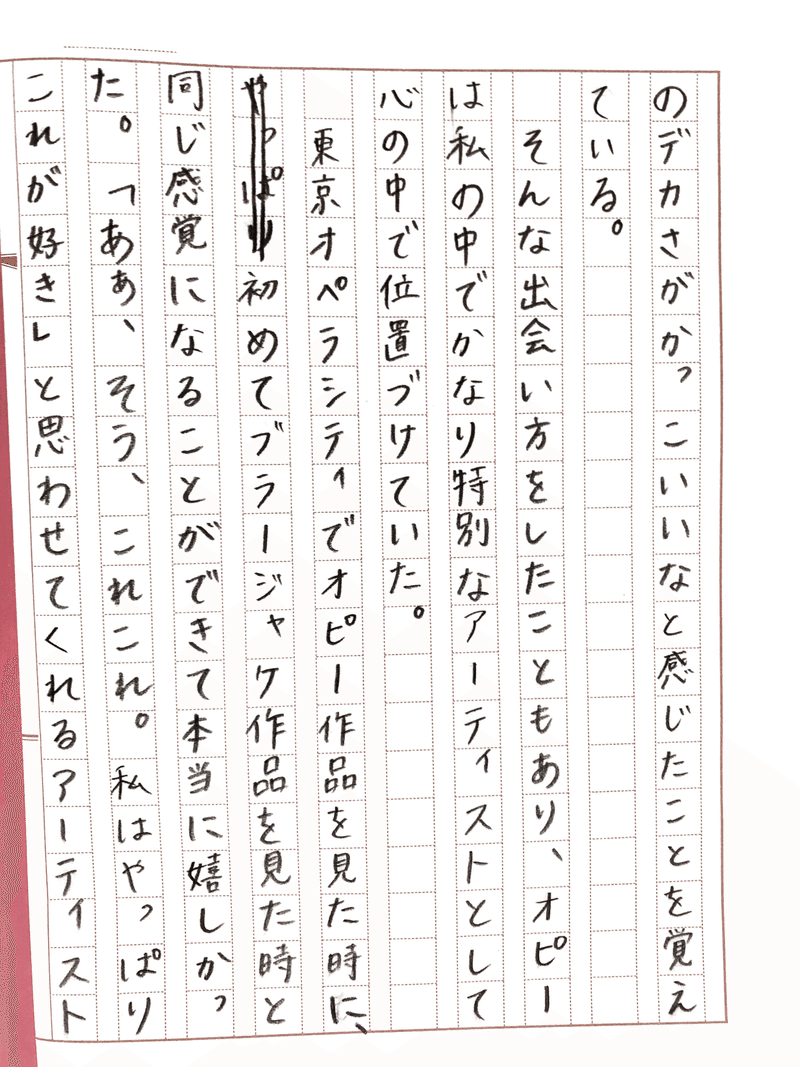 のデカさがかっこいいなと感じたことを覚え
ている。
そんな出会い方をしたこともあり、オピー
は私の中でかなり特別なアーティストとして
心の中で位置づけていた。
東京オペラシティでオピー作品を見た時に、
やっぱり初めてブラージャケ作品を見た時と
同じ感覚になることができて本当に嬉しかっ
た。「ああ、そう、これこれ。私はやっぱり
これが好き」と思わせてくれるアーティスト